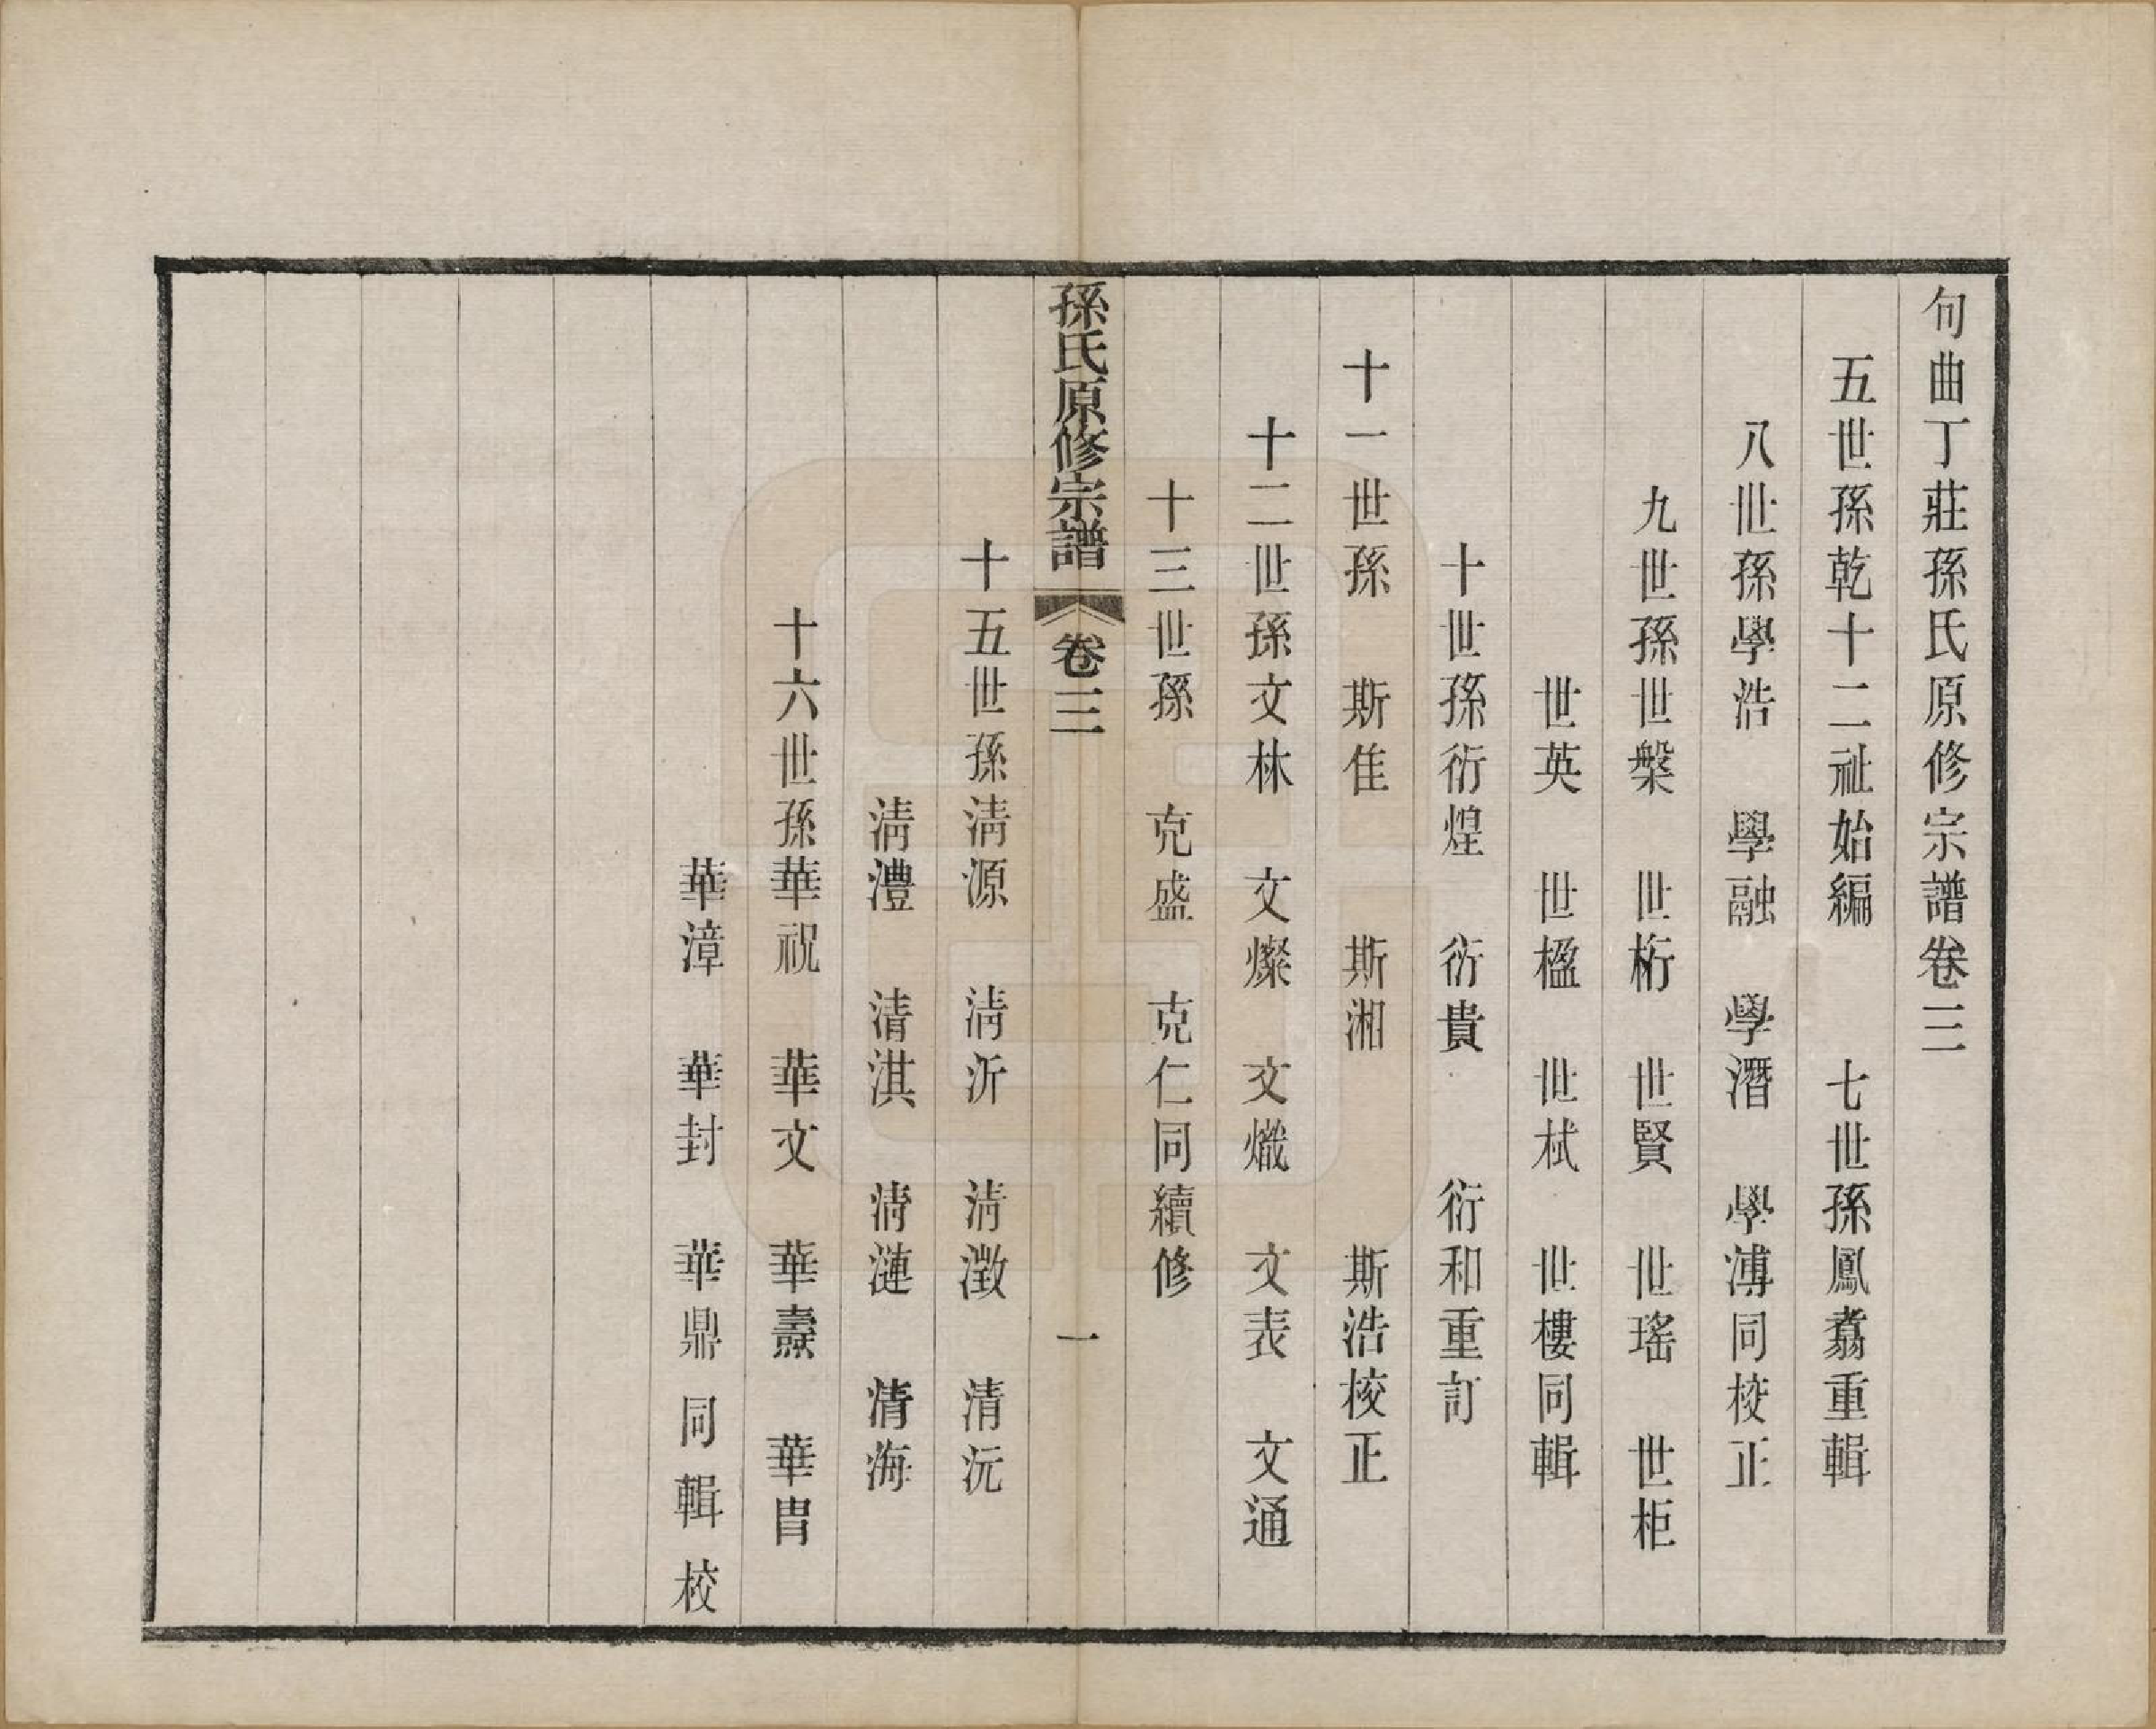 句曲丁莊孫氏原修宗譜卷三
五世孫乾十二祉始編 七世孫鳳翥重輯
八世孫學浩 學融 學潛 學溥同校正
九世孫世槃 世桁 世賢 世瑤 世柜
世英 世楹 世栻 世樓同輯
十世孫衍煌 衍貴 衍和重訂
十一世孫 斯佳 斯湘 斯浩校正
十二世孫文林 文燦 文熾 文表 文通
十三世孫 克盛 克仁同續修
孫氏原修宗譜 卷三 一
十五世孫清源 清沂 清澂 清沅
清澧 清淇 清漣 清海
十六世孫華祝 華文 華燾 華胄
華漳 華封 華鼎同輯校